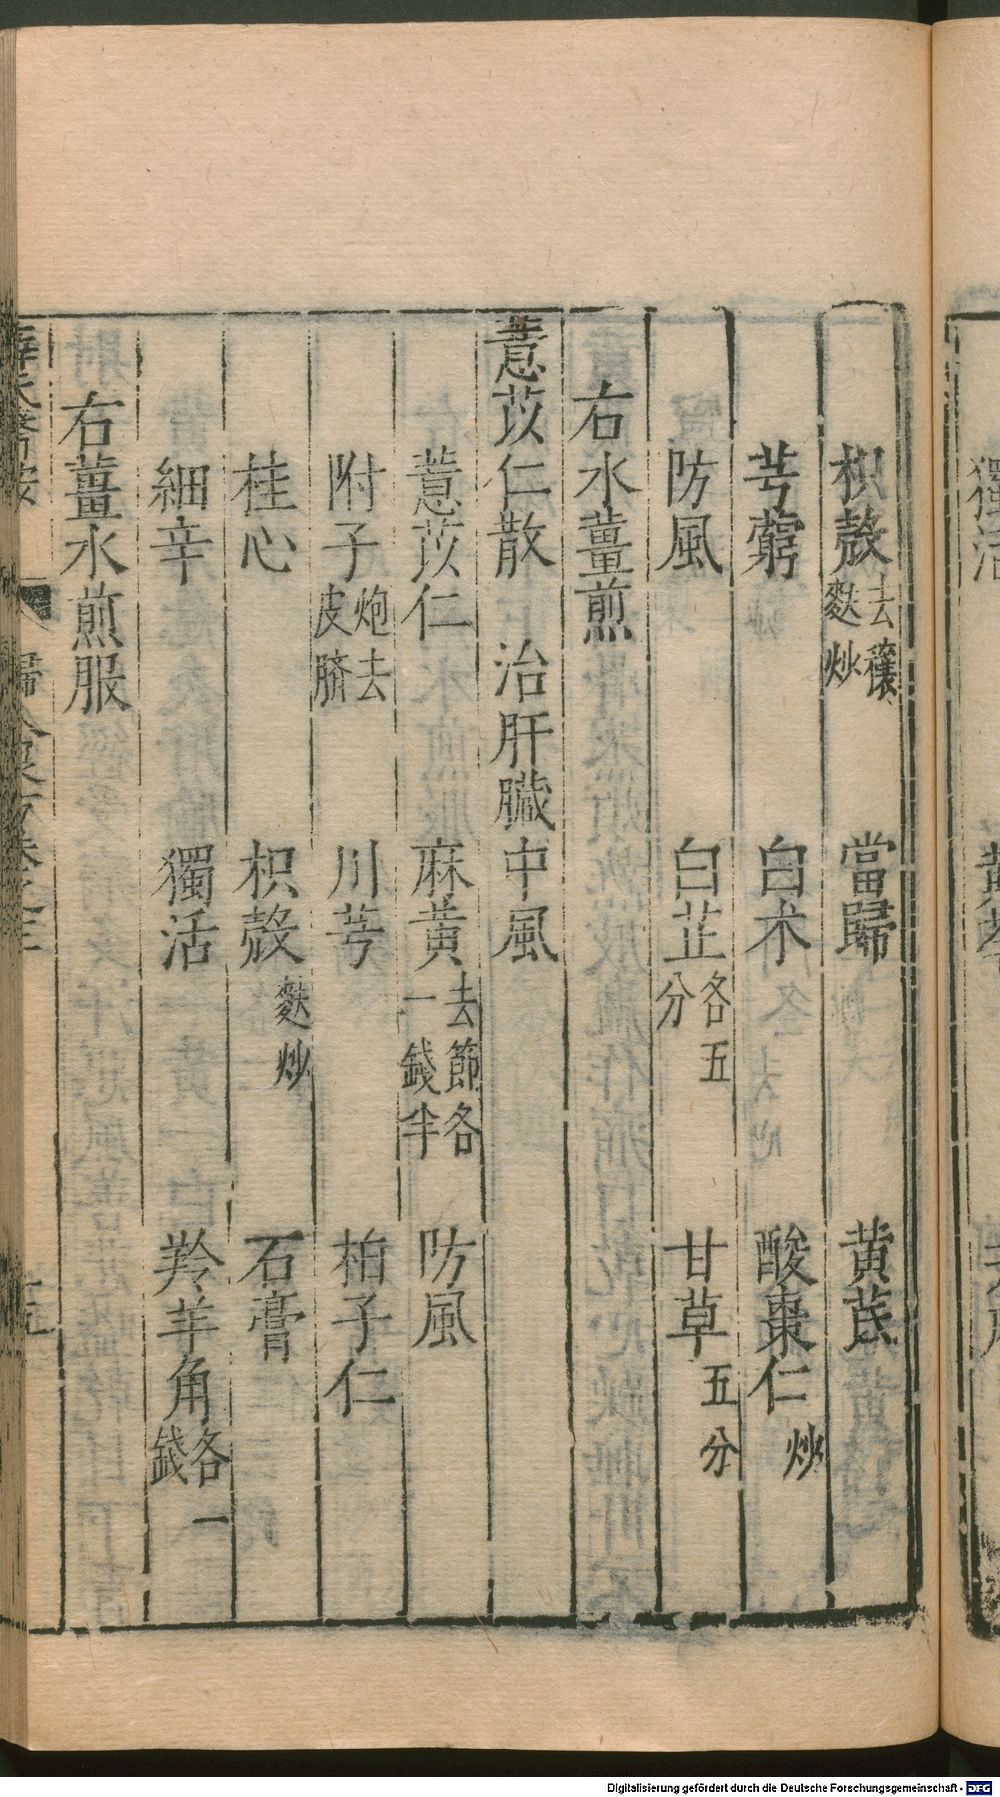 枳殼去穰麩炒　當歸　黃芪
芎藭　白朮　酸棗仁炒
防風　白芷各五分　甘草五分
右水薑煎
薏苡仁散　治肝臟中風
薏苡仁　麻黃去節各一錢半　防風
附子炮去皮臍　川芎　柏子仁
桂心　枳殼麩炒　石膏
細辛　獨活　羚羊角各一錢
右薑水煎服
Digitalisierung gefördert durch die Deutsche Forschungsgemeinschaft - DFG